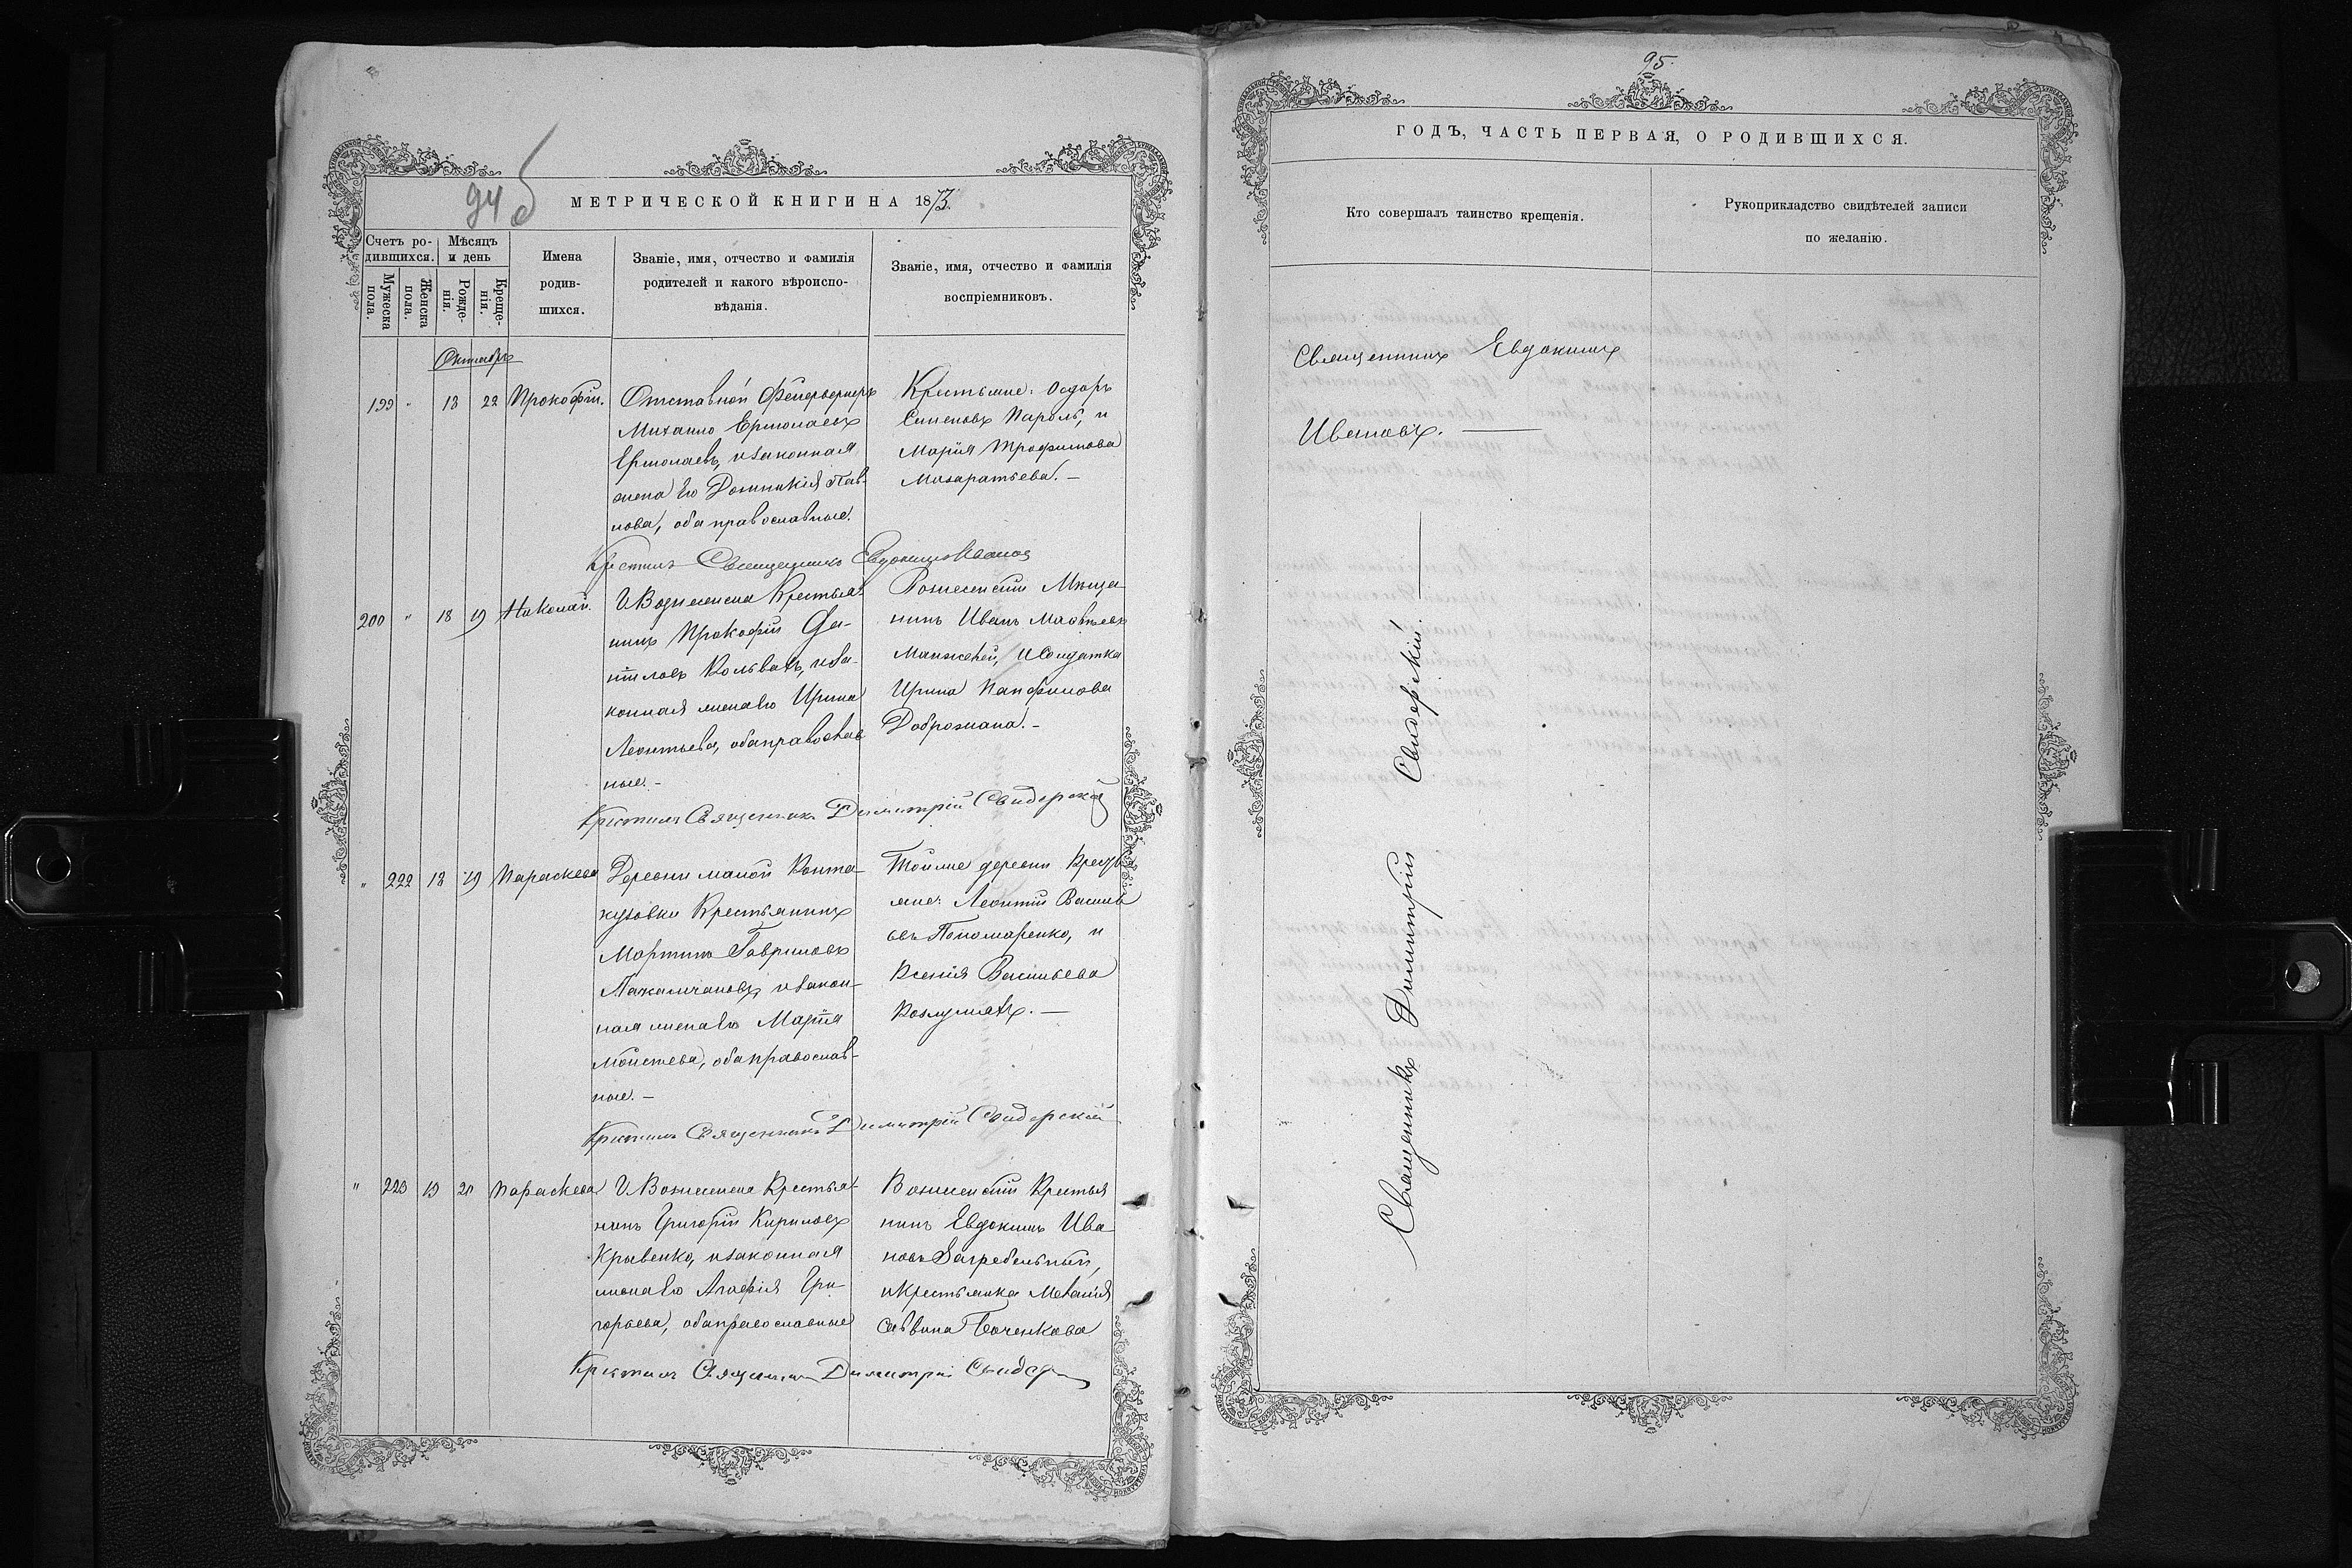 94 б
МЕТРИЧЕСКОЙ КНИГИ НА 1873.
Счетъ ро-
дившихся.
Мѣсяцъ
и день
Мужеска
пола.
Женска
пола.
Рожде-
нія.
Креще-
нія.
Имена
родив-
шихся.
Званіе, имя, отчество и фамилія
родителей и какого вѣроиспо-
вѣданія.
Званіе, имя, отчество и фамилія
воспріемниковъ.
Октябрь
199 " 18 22 Прокофій.
Отставной Фейерверкеръ
Михаило Ермолаевъ
Ермолаевъ, и законная
жена его Домникія Пав-
лова, оба православные.
Крестьяне: Өедоръ
Семеновъ Король, и
Марія Трофимова
Крестилъ Священникъ Евдокимъ Ивановъ
200 " 18 19 Николай.
Г. Вознесенска Крестья-
нинъ Прокофій Да-
ниловъ и за-
конная жена его Ирина
Леонтьева, оба православ
ные. -
Вознесенскій Мѣща-
нинъ Иванъ Матвѣевъ
Манжелей, и Солдатка
Ирина Панфилова
Доброжана. -
Крестилъ Священникъ Димитрій Свидерскій
" 222 18 19 Параскева
Деревни малой Канта-
кузовки Крестьянинъ
Мартинъ Гавриловъ
и закон-
ная жена его Марія
Моисѣева, оба православ-
ные. -
Той же деревни Кресть
яне: Леонтій Василь
евъ Пономаренко, и
Ксенія Васильева
Крестилъ Священникъ Димитрій Свидерскій
" 223 19 21 Параскева
Г. Вознесенска Крестья-
нинъ Григорій Кириловъ
Кривенко, и законная
жена его Агафія Гри-
горьева, оба православные
Вознесенскій Крестья
нинъ Евдокимъ Ива-
новъ Загребельный,
и Крестьянка Меланія
Саввина Боченкова
Крестилъ Священникъ Димитрій Свидер
95.
ГОДЪ, ЧАСТЬ ПЕРВАЯ, О РОДИВШИХСЯ.
Кто совершалъ таинство крещенія.
Рукоприкладство свидѣтелей записи
по желанію.
Священникъ Евдокимъ
Ивановъ.
Священникъ Димитрій Свидерскій.